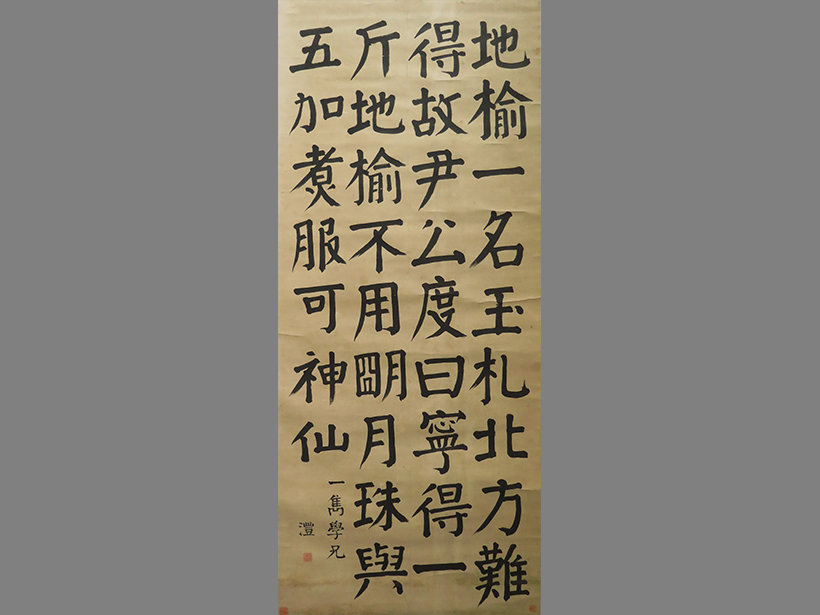 地榆一名玉札北方難
得故尹公度曰寧得一
斤地榆不用朙月珠與
五加煑服可神仙
一雋學兄
澧